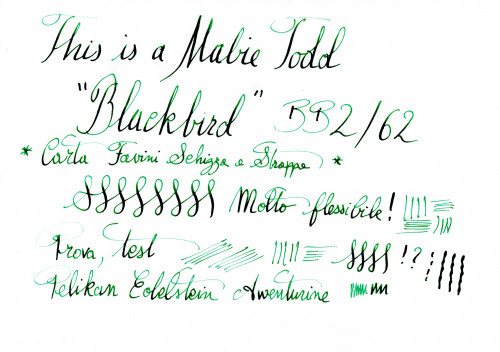 This is a Mabie Todd
"Blackbird" BB2/62
* Carta Favini Schizza e Strappa *
Molto flessibile!
Prova, test !?
Pelikan Edelstein Aventurine